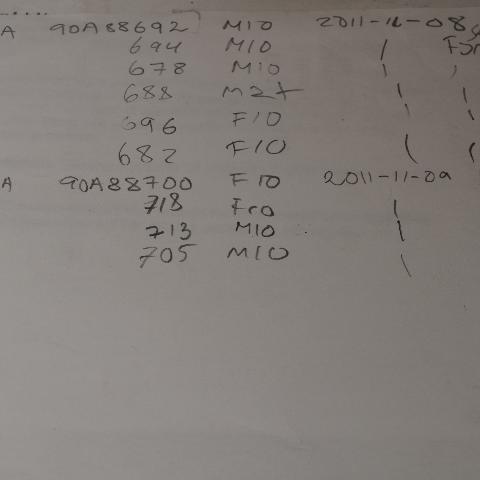 A 90A88692 M10 2011-11-08
694 M10 /
678 M10 \
688 M2+ \ \
696 F10 \ \
682 F10 ( (
A 90A88700 F10 2011-11-09
718 F10 \
713 M10 \
705 M10 \